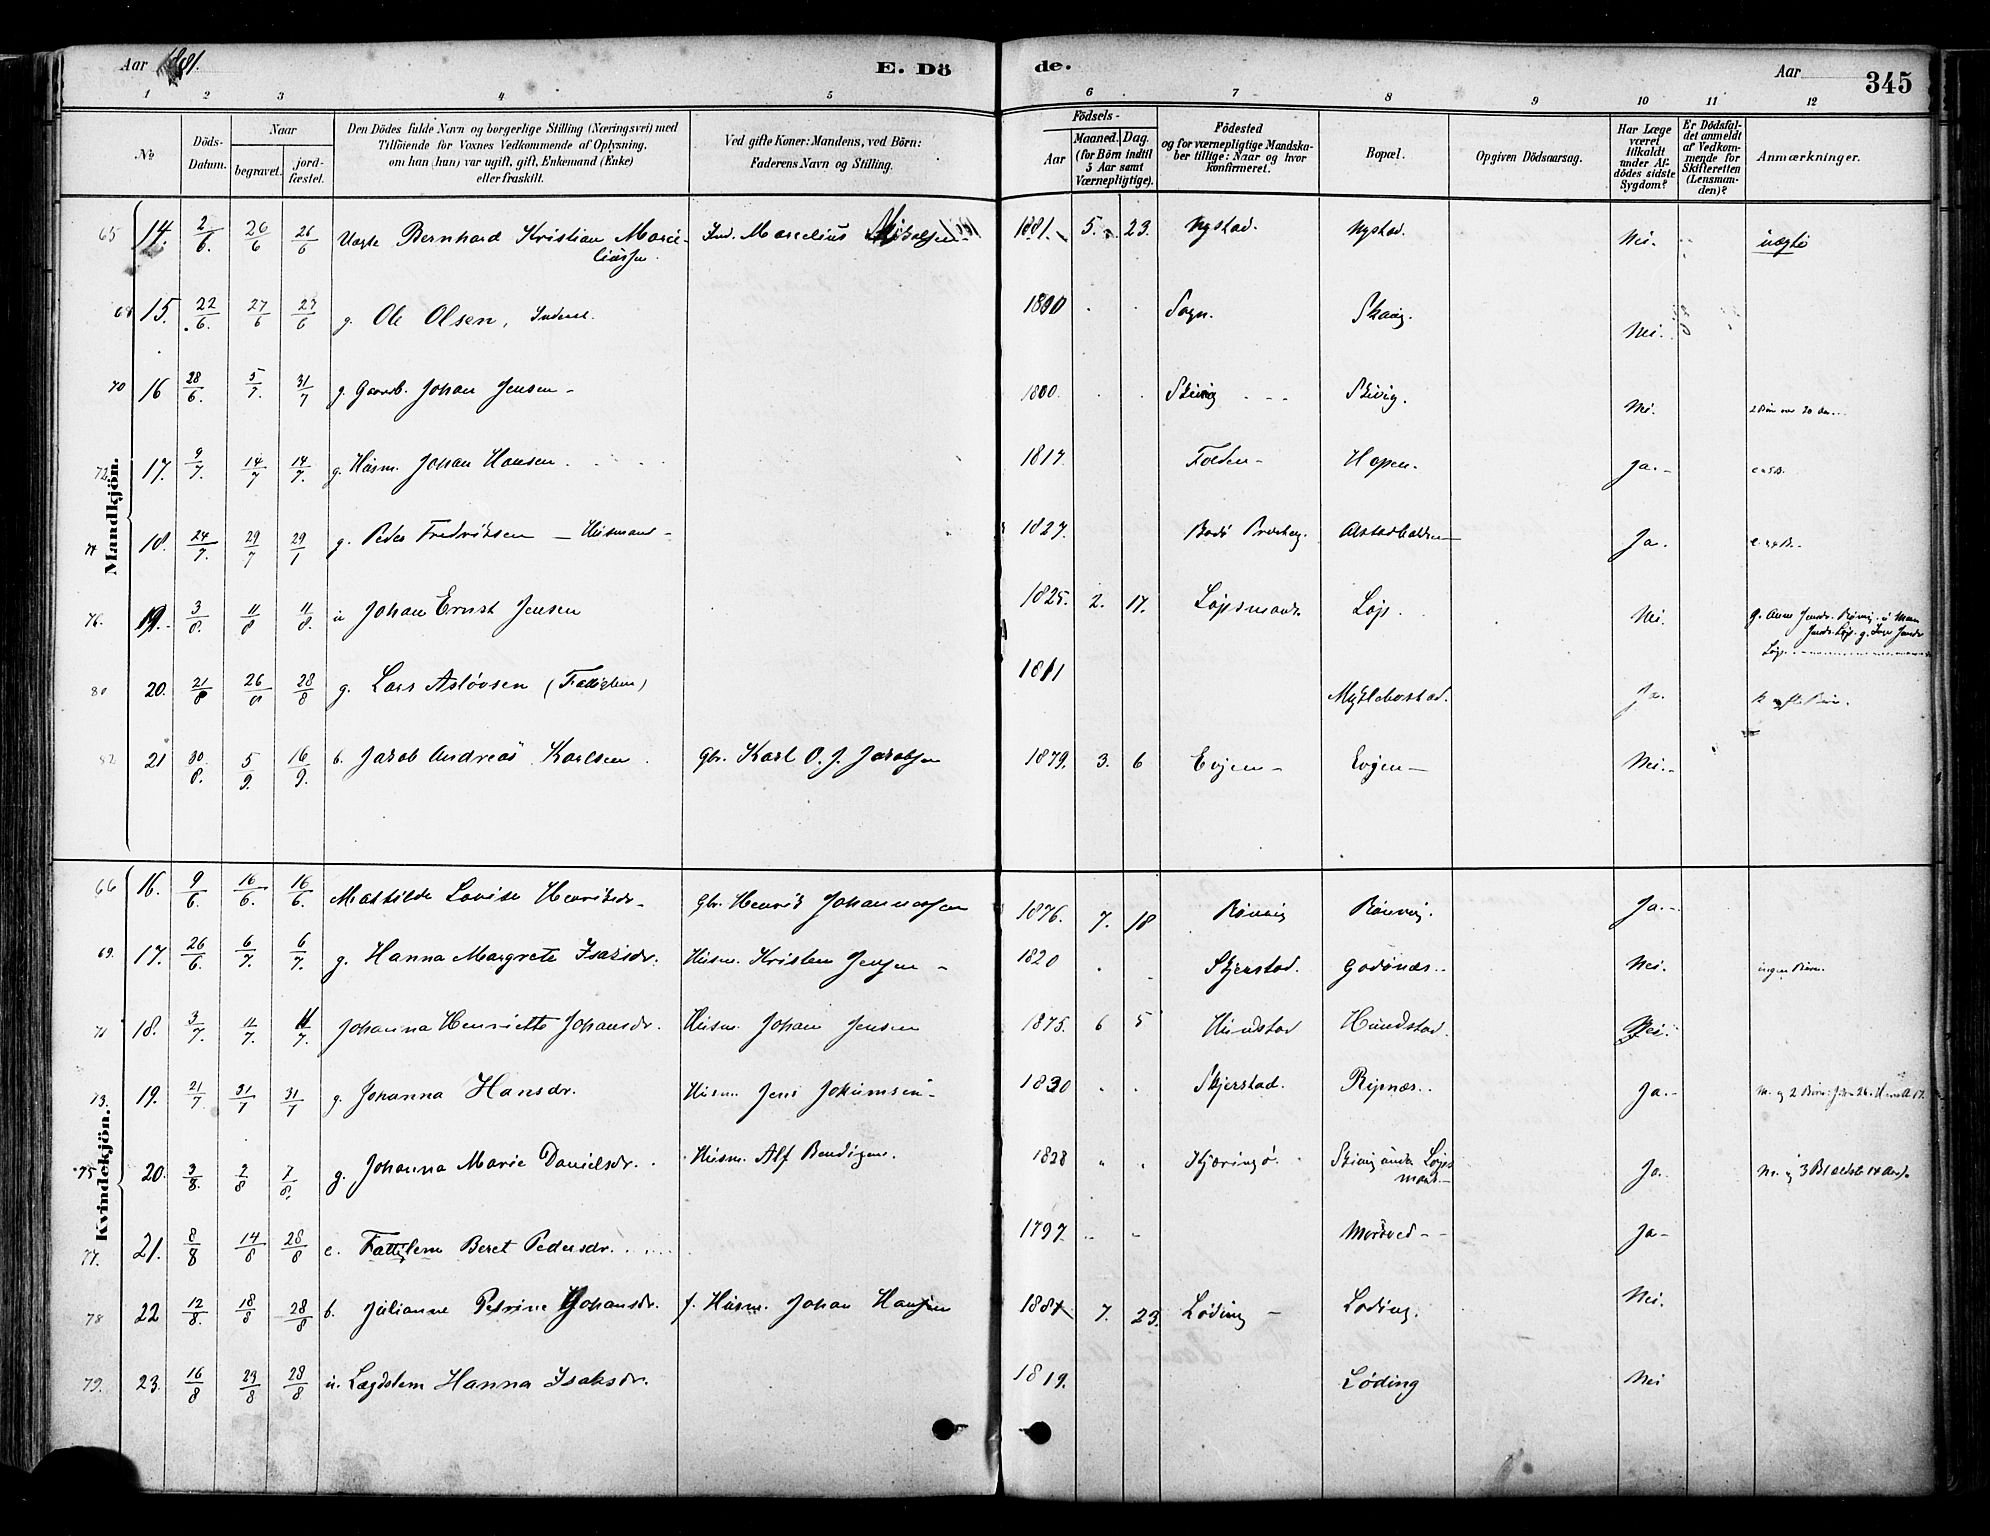 Aar 1881.
E. Dö
de.
Aar
345
1 2 3 4 5 6 7 8 9 10 11 12
No
Döds-Datum.
Naar
begravet.
jord-fæstet.
Den Dödes fulde Navn og borgerlige Stilling (Næringsvei) med
Tilföiende for Voxnes Vedkommende af Oplysning,
om han (hun) var ugift, gift, Enkemand (Enke)
eller fraskilt.
Ved gifte Koner: Mandens, ved Börn:
Faderens Navn og Stilling.
Födsels-
Aar
Maaned. Dag.
(for Börn indtil
5 Aar samt
Værnepligtige).
Födested
og for værnepligtige Mandska-
ber tillige: Naar og hvor
konfirmeret.
Bopæl.
Opgiven Dödsaarsag.
Har Læge
været
tilkaldt
under Af-
dödes sidste
Sygdom?
Er Dödsfal-
det anmeldt
af Vedkom-
mende for
Skifteretten
(Lensman-
den)?
Anmærkninger.
Mandkjön.
65 14. 2/6 26/6 26/6 Uægte Bernhard Kristian Marce- Ind. Marcelius 1881. 5. 23. Nystad. Nystad. Nei. uægte
liussen
68 15. 22/6. 27/6 27/6 g. Ole Olsen, Inderst. 1800 Sogn. Skavig. Nei.
70 16 28/6. 5/7. 31/7 g. Gaardb. Johan Jensen 1800. Skivig Skivig. Nei.
72. 17. 9/7. 14/7 14/7. g. Husm. Johan Hansen. 1817. Folden Hopen. Ja.
74 18. 24/7. 29/7 29/7 g. Peder Fredriksen Husmand 1827. Bodø Præsteg. Ja.
76. 19. 3/8. 11/8 11/8. u Johan Ernst Jensen 1825. 2. 17. Løpsmark. Løp. Nei. g. Anne Jensdr.
80 20. 21/8 26/8 28/8 g. Lars Asløvsen (Fattiglem) 1811 Myklebostad. Ja.
82 21 30/8. 5/9. 16/9. b. Jakob Andreas Karlsen. Gbr. Karl O. J. Jakobsen 1879. 3. 6 Evjen Evjen Nei.
Kvindekjön.
66 16. 9/6. 16/6. 16/6. Mathilde Lovise Henriksdr. Gbr. Henrik Johannessen 1876. 7. 18 Rønvig Rønvig. Ja.
69. 17. 26/6. 6/7. 6/7. g. Hanna Margrete Isaksdr. Husm. Kristen Jensen 1820 Skjerstad. Godønes. Nei. ingen Børn.
71 18. 3/7. 11/7. 11/7. Johanna Henriette Johansdr. Husm. Johan Jensen 1875. 6 5 Hundstad Hundstad. Nei.
73. 19. 21/7 31/7 31/7 g. Johanna Hansdr. Husm. Jens Jokumsen 1830 Skjerstad. Ripnæs. Ja. M. og 2 Børn:
75 20. 3/8. 7/8 7/8. g. Johanna Marie Danielsdr. Husm. Alf Bendixen. 1828 Kjæringø. Skivig under Løps Ja. M. og 3 B (ældste 14 Aar).
mark.
77. 21. 8/8 14/8 28/8 e. Fattiglem Beret Pedersdr. 1797. Mørkved Ja
78 22 12/8. 18/8 28/8 b. Julianne Petrine Johansdr. f. Husm. Johan Hansen 1881 7. 23. Løding Løding. Nei.
79. 23. 16/8 23/8 28/8 u. Lægdslem Hanna Isaksdr. 1819. Løding Nei